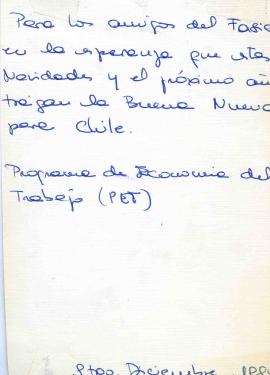 Para los amigos del Fasic
en la esperanza que estas
Navidades y el próximo añ
traigan la Buena Nueva
para Chile.
Programa de Economía del
Trabajo (PET)
Stgo. Diciembre